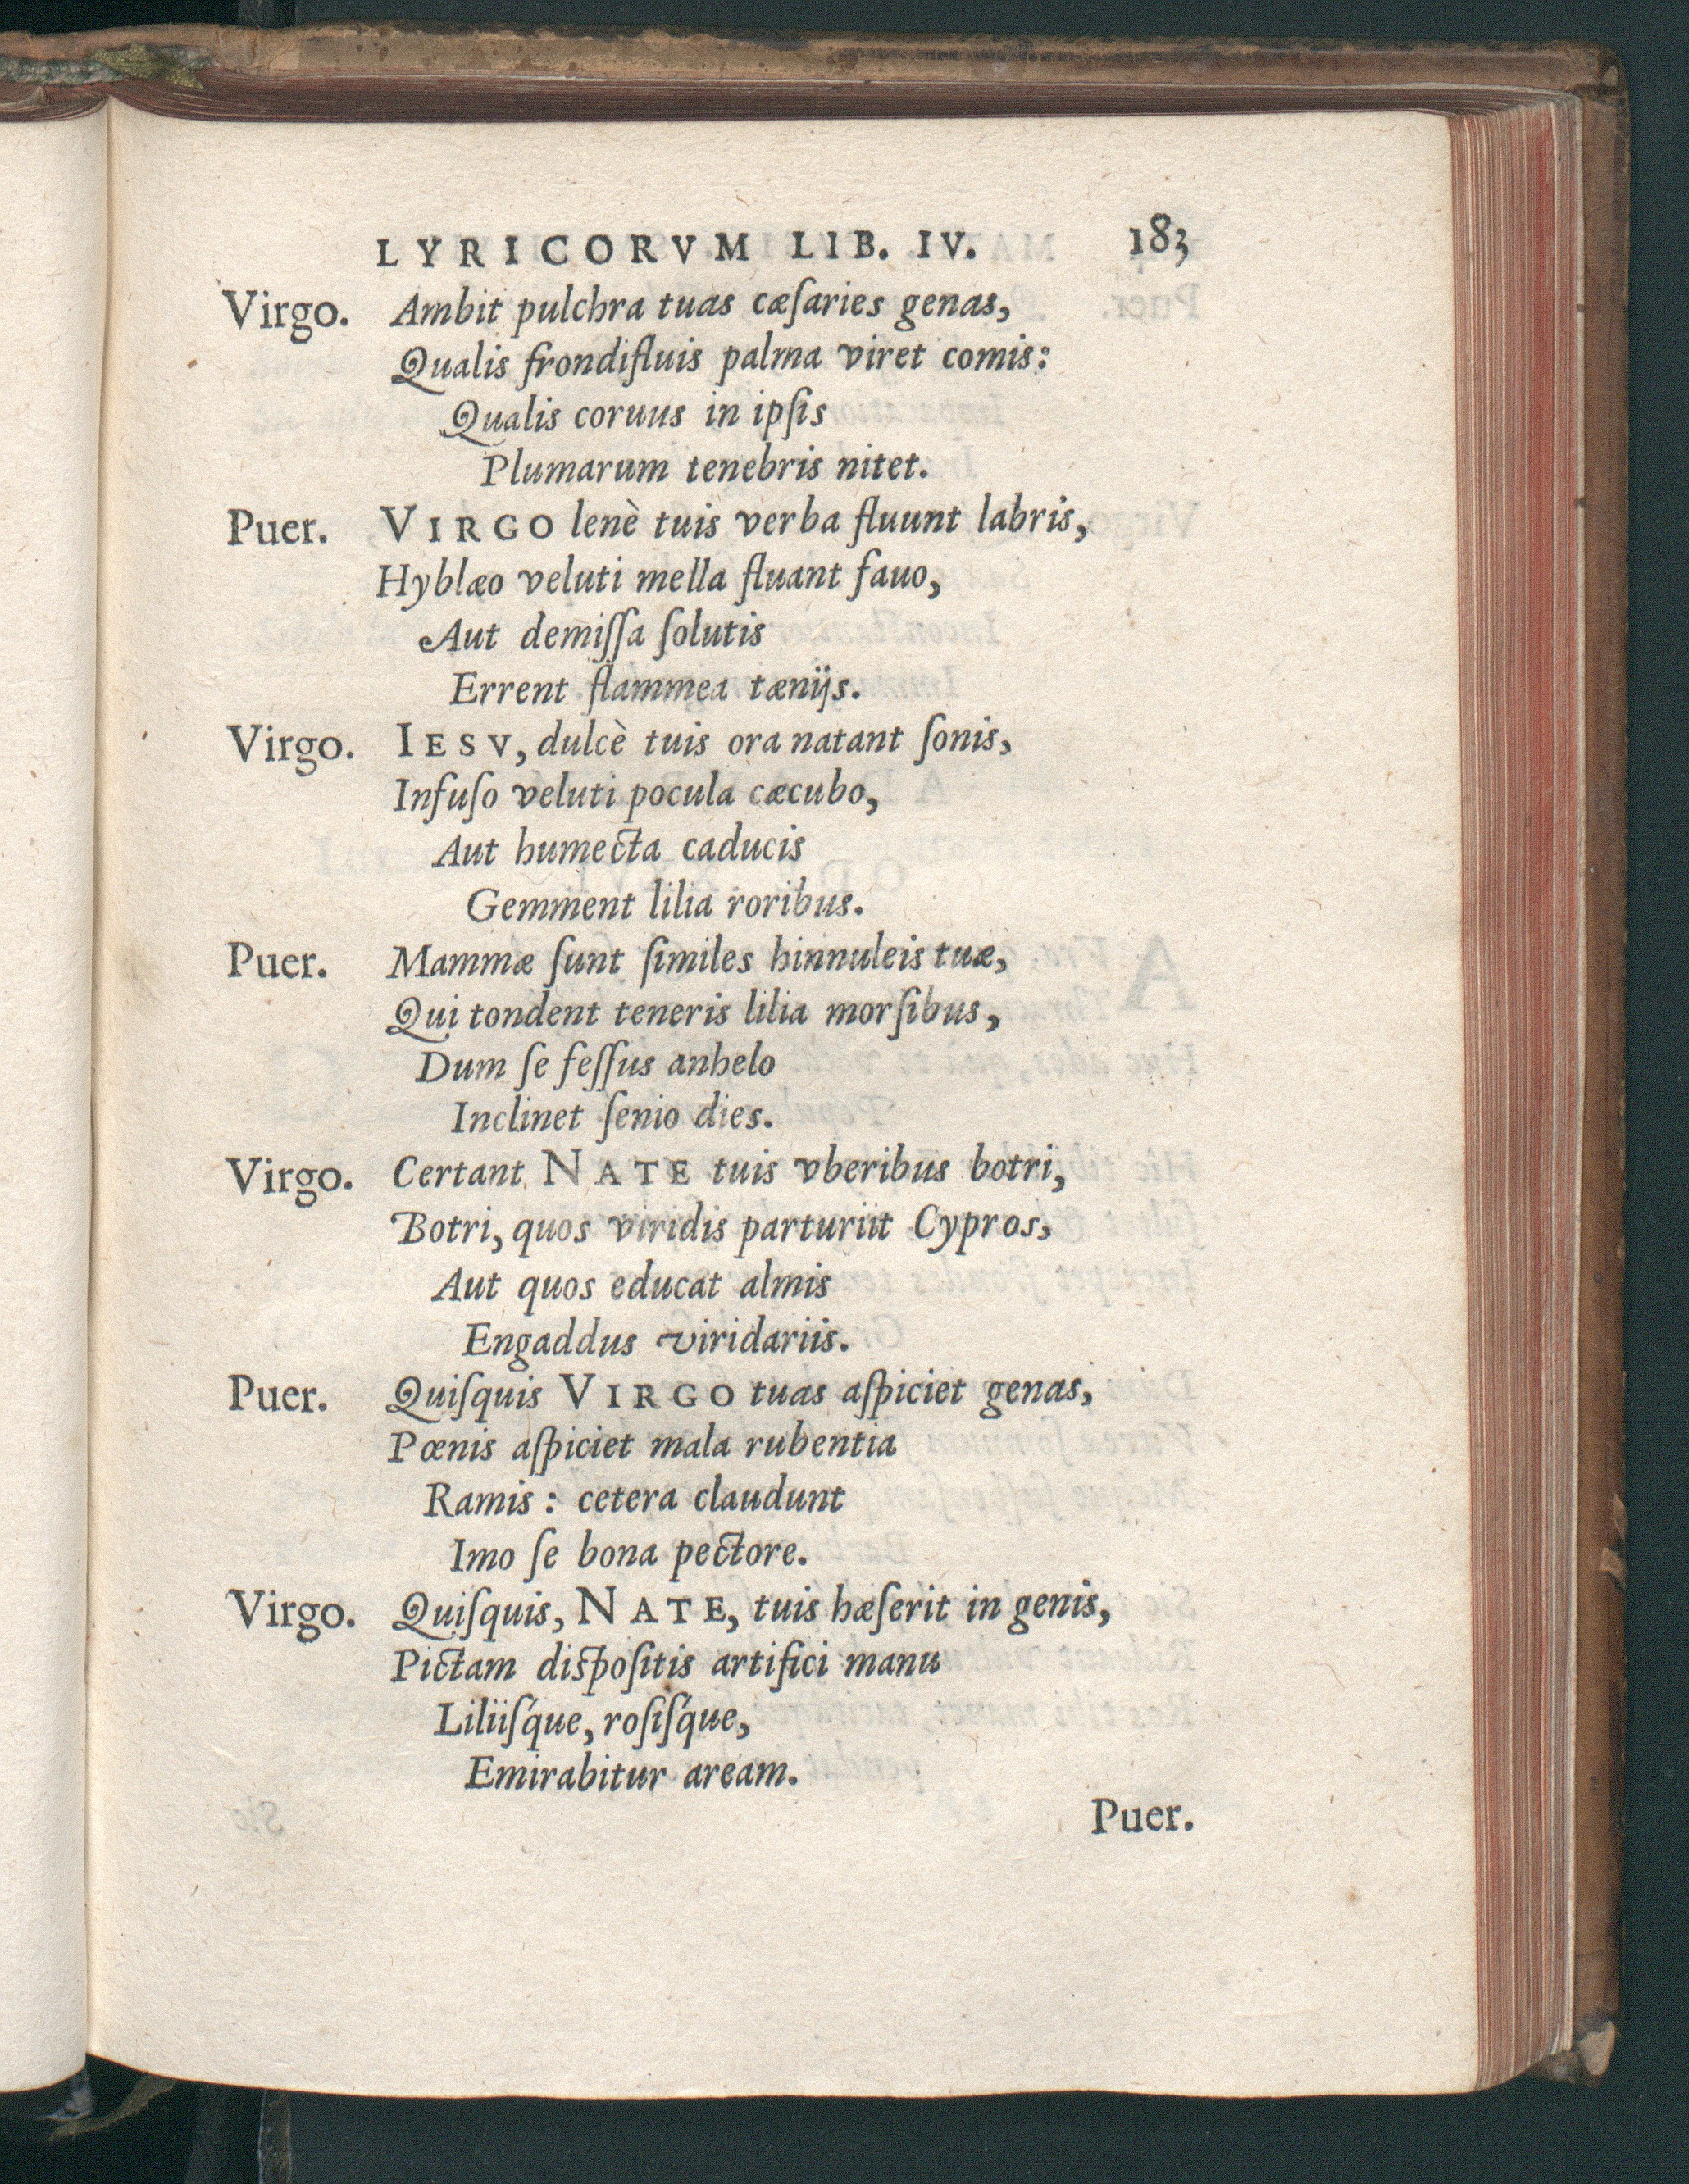 LYRICORVM LIB. IV. 183
Virgo. Ambit pulchra tuas cæſaries genas,
Qualis frondifluis palma viret comis:
Qualis coruus in ipſis
Plumarum tenebris nitet.
Puer. VIRGO lenè tuis verba fluunt labris,
Hyblæo veluti mella fluant fauo,
Aut demiſſa ſolutis
Errent flammea tænijs.
Virgo. IESV, dulcè tuis ora natant ſonis,
Infuſo veluti pocula cæcubo,
Aut humecta caducis
Gemment lilia roribus.
Puer. Mammæ ſunt ſimiles hinnuleis tuæ,
Qui tondent teneris lilia morſibus,
Dum ſe feſſus anhelo
Inclinet ſenio dies.
Virgo. Certant NATE tuis vberibus botri,
Botri, quos viridis parturiit Cypros,
Aut quos educat almis
Engaddus viridariis.
Puer. Quiſquis VIRGO tuas aſpiciet genas,
Pœnis aſpiciet mala rubentia
Ramis: cetera claudunt
Imo ſe bona pectore.
Virgo. Quiſquis, NATE, tuis hæſerit in genis,
Pictam diſpoſitis artifici manu
Liliiſq́ue, roſiſq́ue,
Emirabitur aream.
Puer.